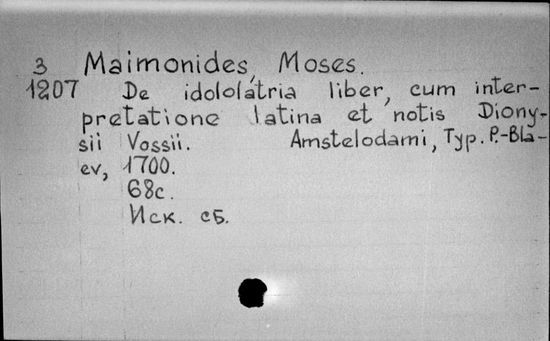 3 Maimonides, Moses.
1207 De idololatria liber, cum inter-
pretatione latina et notis Diony-
sii Vossii. Amstelodami, Typ. P.-Bla-
ev, 1700.
68с.
Иск. сб.